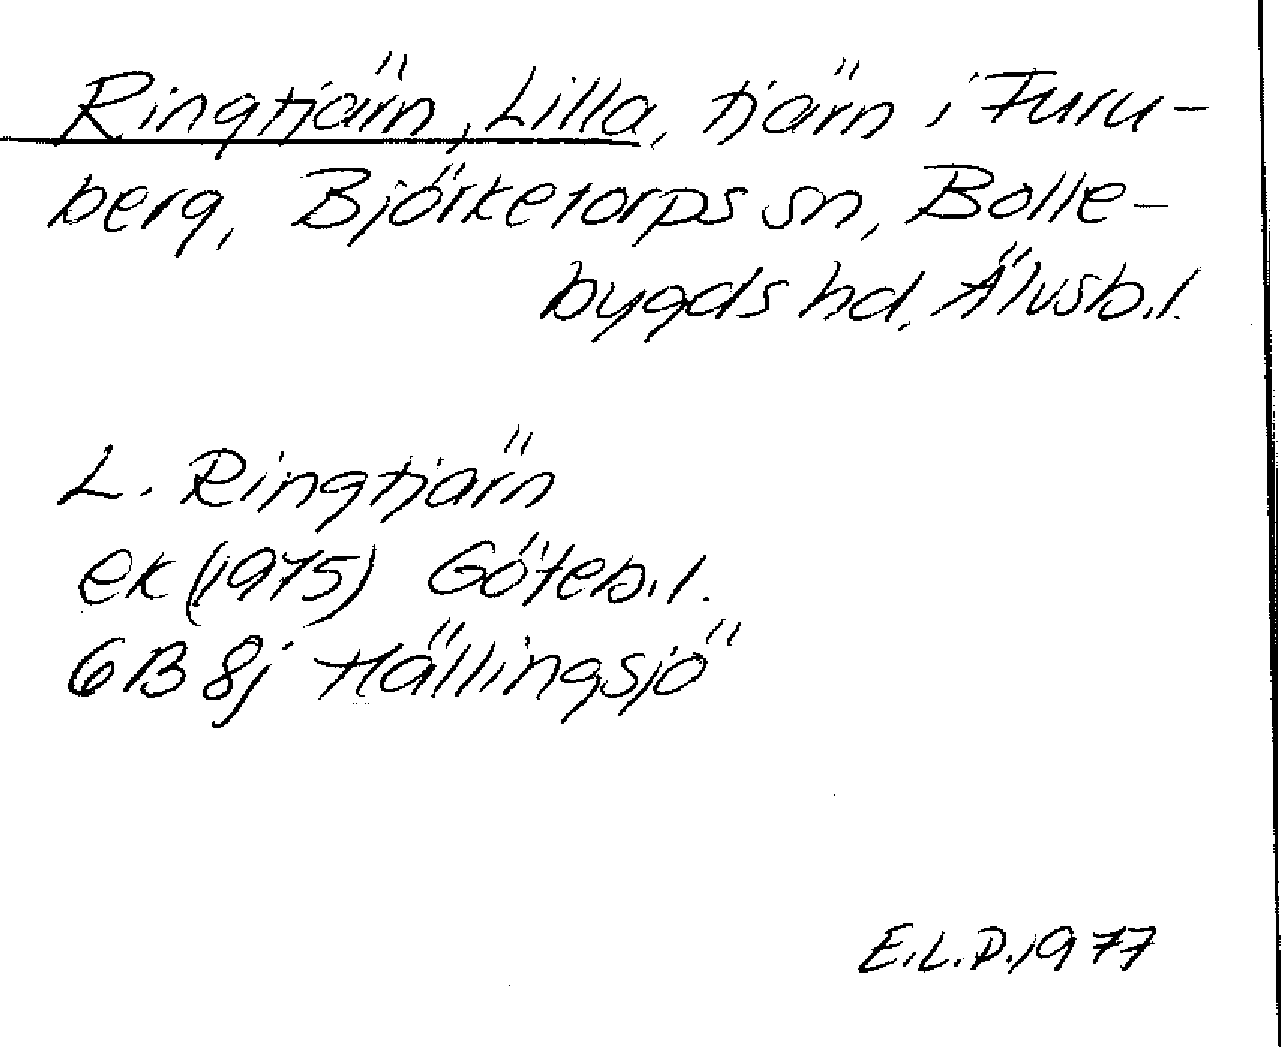 Ringtjärn, Lilla, tjärn i Furu-
berg, Björketorps sn, Bolle-
bygds hd, Älvsb.l.
L. Ringtjärn
ek (1975) Göteb.l.
6B 8j Hällingsjö
E.L.P.1977